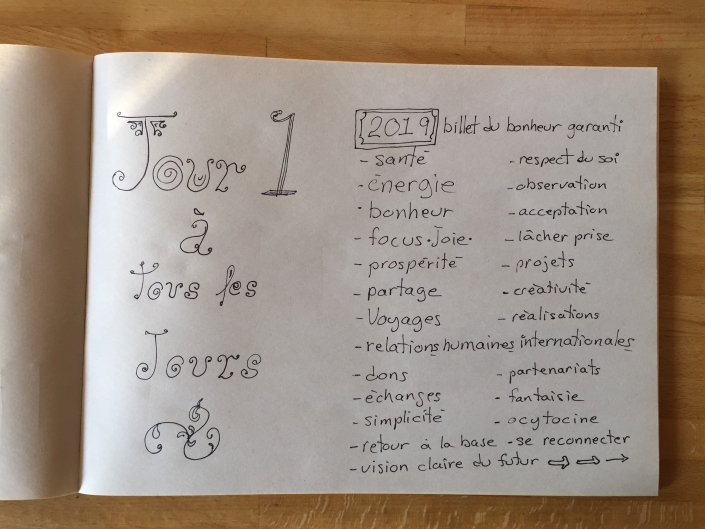 Jour 1
à
Tous les
Jours
[2019] billet du bonheur garanti
- santé
- énergie
· bonheur
- focus · Joie ·
- prospérité
- partage
- Voyages
- respect du soi
- observation
- acceptation
- lâcher prise
- projets
- créativité
- réalisations
- relations humaines internationales
- dons
- échanges
- simplicité
- partenariats
- fantaisie
- ocytocine
- retour à la base - se reconnecter
- vision claire du futur ⇨ ⇨ →